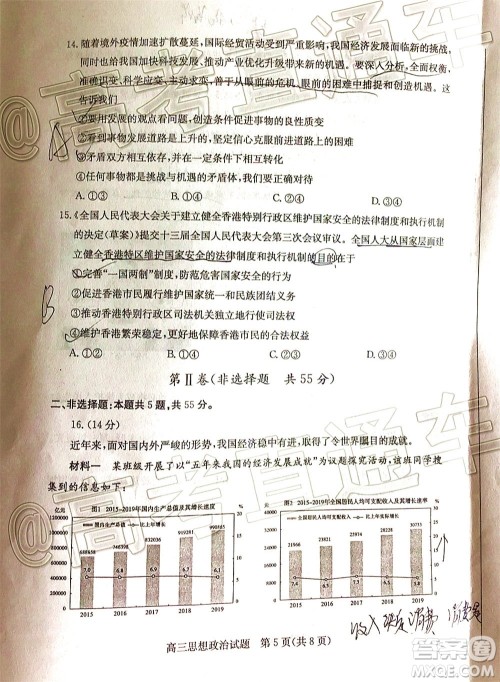 14. 随着境外疫情加速扩散蔓延，国际经贸活动受到严重影响，我国经济发展面临新的挑战，
同时也给我国加快科技发展、推动产业优化升级带来新的机遇。要深入分析，全面权衡，
准确识变、科学应变、主动求变，善于从眼前的危机、眼前的困难中捕捉和创造机遇。这
告诉我们
①要用发展的观点看问题，创造条件促进事物的良性质变
②看到事物发展道路是上升的，坚定信心克服前进道路上的困难
③矛盾双方相互依存，并在一定条件下相互转化
④任何事物都是挑战与机遇的矛盾统一体，我们要兴利除弊
A. ①③ B. ①④ C. ②③ D. ②④
15.《全国人民代表大会关于建立健全香港特别行政区维护国家安全的法律制度和执行机制
的决定(草案)》提交十三届全国人大第三次会议审议。全国人大从国家层面建
立健全香港特区维护国家安全的法律制度和执行机制的目的在于
①完善“一国两制”制度，防范危害国家安全的行为
②促进香港市民履行维护国家统一和民族团结义务
③推动香港特别行政区司法机关独立地行使司法权
④维护香港繁荣稳定，更好地保障香港市民的合法权益
A. ①② B. ①④ C. ②③ D. ③④
第Ⅱ卷(非选择题 共 55 分)
二、非选择题：本题共 5 题，共 55 分。
16. (14 分)
近年来，面对国内外严峻的形势，我国经济稳中有进，取得了令世界瞩目的成就。
材料一 某班级开展了以“五年来我国的经济发展成就”为议题探究活动，该班同学搜
集到的信息如下：
图1 2015-2019年国内生产总值及其增长速度
亿元
国内生产总值 比上年增长
688858 746395 832036 919281 990865
7.0 6.8 6.9 6.7 6.1
2015 2016 2017 2018 2019
图2 2015-2019年全国居民人均可支配收入及其增长速率
21966 23821 25974 28228 30733
2015 2016 2017 2018 2019
高三思想政治试题 第 5 页(共 8 页)
高考直通车